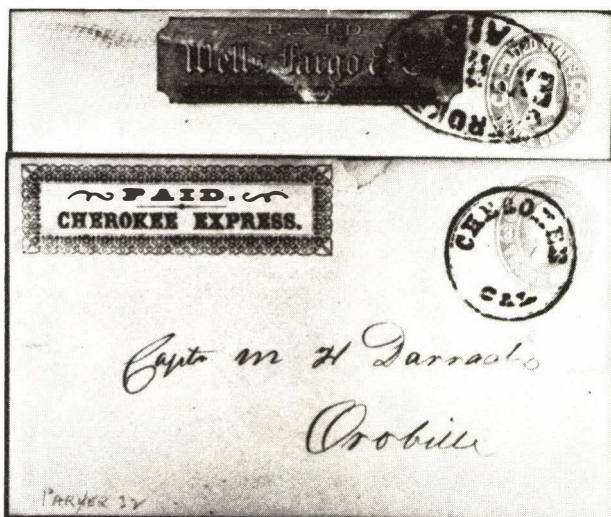 PAID
Wells, Fargo & C
PAID.
CHEROKEE EXPRESS.
CHEROKEE
CAL
Capt m H Darrach
Oroville
PARKER 32